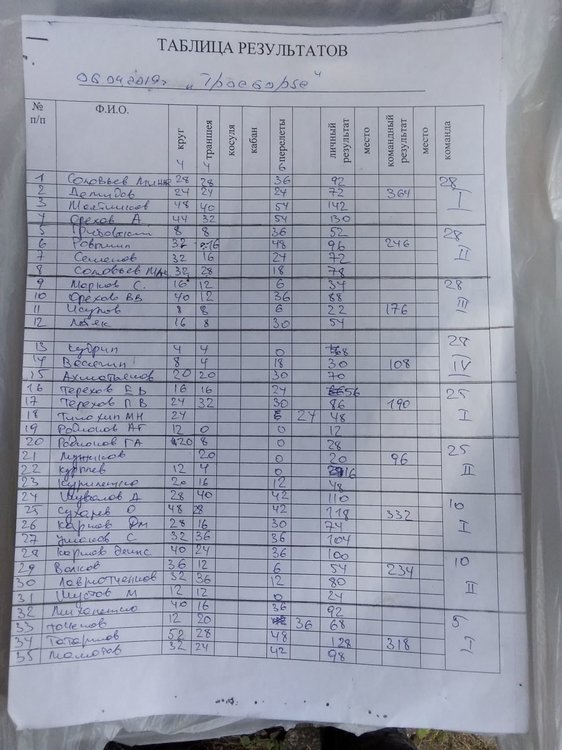 ТАБЛИЦА РЕЗУЛЬТАТОВ
06 04 2019г "Троеборье"
№ п/п Ф.И.О. 4 круг 4 траншея косуля кабан 6 перелеты личный результат место командный результат место команда
1 Соловьев 28 28 36 92 28
2 Демидов 24 24 24 72 364 I
3 48 40 54 142
4 Орехов А. 44 32 54 130
5 8 8 36 52 28
6 32 16 48 96 246 II
7 Семенов 32 16 24 72
8 Соловьев 32 28 18 78
9 Марков С. 16 12 6 34 28
10 Орехов ВВ 40 12 36 88 III
11 8 8 6 22 176
12 16 8 30 54
13 Куприн 4 4 0 8 28
14 8 4 18 30 108 IV
15 20 20 30 70
16 Терехов Е В 16 16 24 56 25
17 Терехов П.В 24 32 30 86 190 I
18 Тимохин МН 24 24 48
19 Родионов АГ 12 0 0 12
20 Родионов ГА 20 8 0 28 25
21 20 0 20 96 II
22 12 4 0 16
23 20 16 12 48
24 Шувалов Д 28 40 42 110 10
25 Сухарев О 48 28 42 118 332 I
26 Карпов Дм 28 16 30 74
27 Ушаков С 32 36 36 104
28 Карпов Денис 40 24 36 100 10
29 Волков 36 12 6 54 234 II
30 32 36 12 80
31 Шустов М 12 12 0 24
32 40 16 36 92 5
33 12 20 36 68 I
34 52 28 48 128 318
35 32 24 42 98